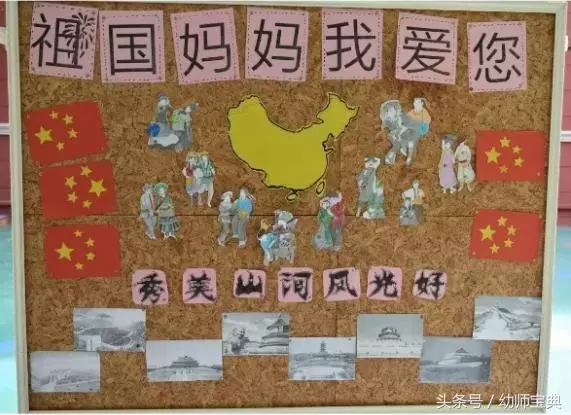 祖国妈妈我爱您
秀美山河风光好
头条号／幼师宝典